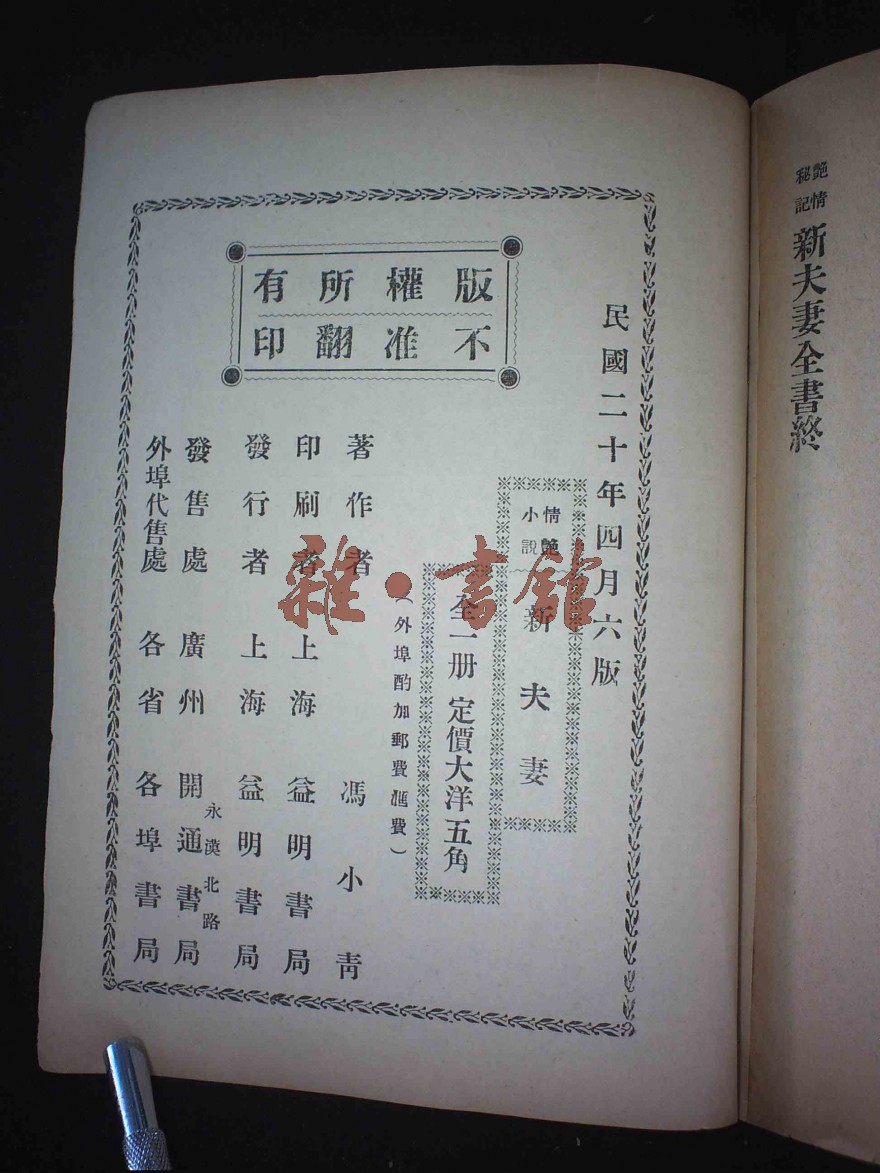 艷情
秘記
新夫妻全書終
民國二十年四月六版
情艷
小說
新夫妻
全一册 定價大洋五角
（外埠酌加郵費滙費）
版權所有
不准翻印
著作者 馮小青
印刷者 上海益明書局
發行者 上海益明書局
發售處 廣州 永漢北路 開通書局
外埠代售處 各省各埠書局
雜·書館